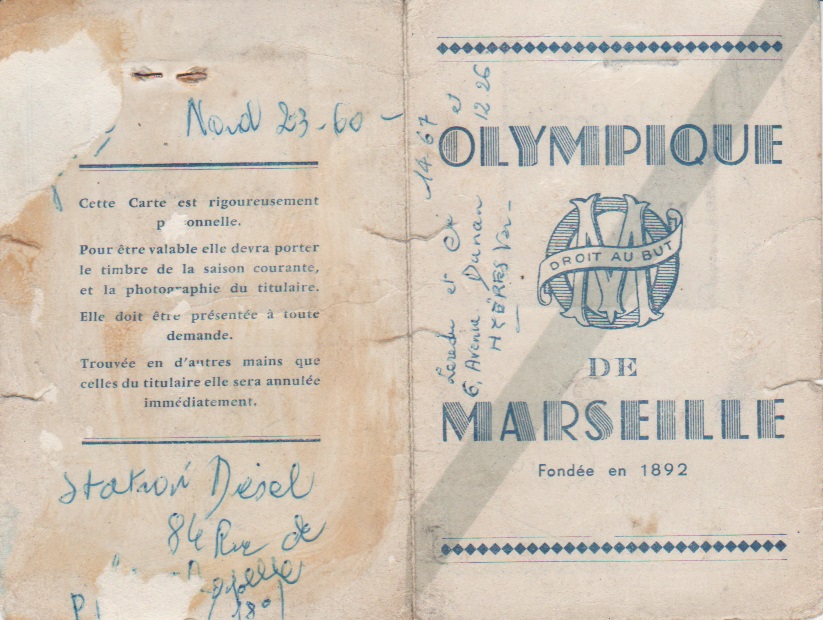 Nord 23-60 -
Cette Carte est rigoureusement
personnelle.
Pour être valable elle devra porter
le timbre de la saison courante,
et la photographie du titulaire.
Elle doit être présentée à toute
demande.
Trouvée en d'autres mains que
celles du titulaire elle sera annulée
immédiatement.
Station Diesel
84 Rue de
OLYMPIQUE
DROIT AU BUT
DE
MARSEILLE
Fondée en 1892
et Cie 14.67 et
6, Avenue 12 26
HYÈRES Var-